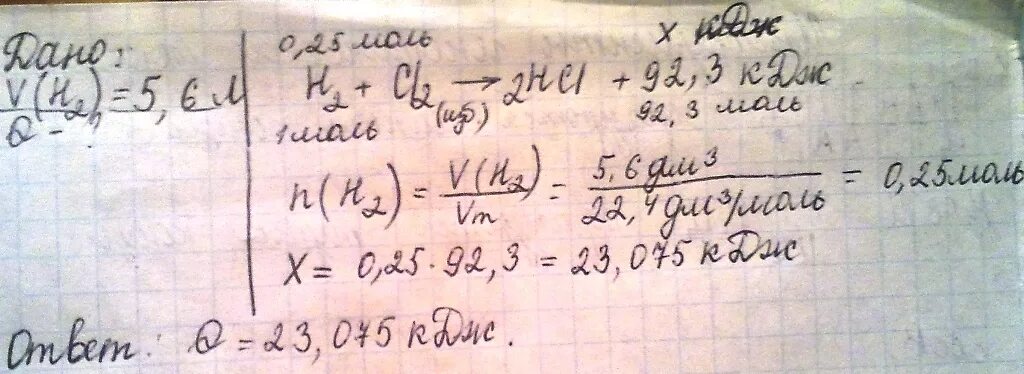 Дано:
V(H₂) = 5,6 л
Q -
0,25 моль
x кДж
H₂ + Cl₂ (изб) → 2HCl + 92,3 кДж
1 моль
92,3 моль
n(H₂) = V(H₂)/Vm = 5,6 дм³/22,4 дм³/моль = 0,25 моль
X = 0,25 · 92,3 = 23,075 кДж
Ответ: Q = 23,075 кДж.